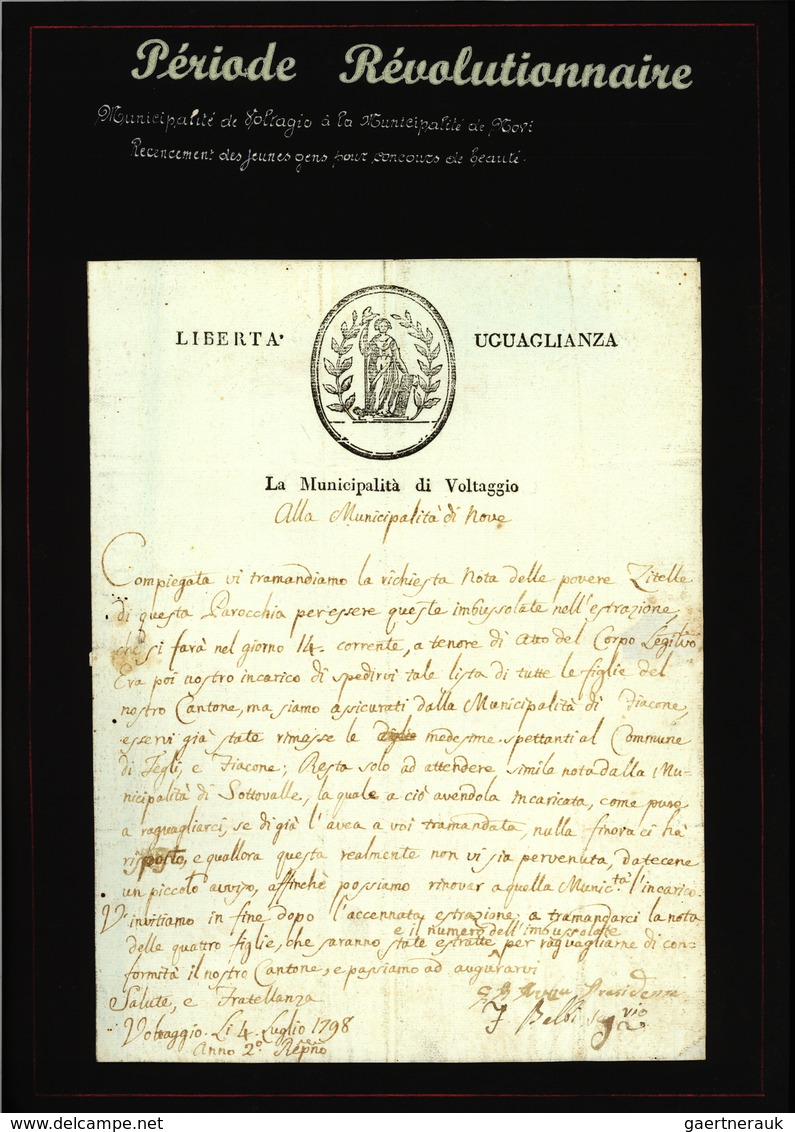 Période Révolutionnaire
Municipalité de Voltagio à la Municipalité de Novi
Recencement des jeunes gens pour concours de beauté.
LIBERTA' UGUAGLIANZA
La Municipalità di Voltaggio
Alla Municipalità di Nove
Compiegata vi tramandiamo la richiesta Nota delle povere Zitelle
di questa Parocchia per essere queste imbussolate nell'estrazione,
che si farà nel giorno 14. corrente, a tenore di Atto del Corpo Legil.vo
Era poi nostro incarico di spedirvi tale lista di tutte le figlie del
nostro Cantone, ma siamo assicurati dalla Municipalità di Fiacone,
esservi già state rimesse le medesime spettanti al Commune
di Tegli, e Fiacone; Resta solo ad attendere simile nota dalla Mu-
nicipalità di Sottovalle, la quale a ciò avendola incaricata, come pure
a raguagliarci, se di già l'avea a voi tramandata, nulla finora ci hà
risposto, e quallora questa realmente non vi sia pervenuta, datecene
un piccolo avviso, affinchè possiamo rinovar a quella Munic.tà l'incarico.
V'invitiamo in fine dopo l'accennata estrazione, a tramandarci la nota
e il numero dell'imbussolate
delle quattro figlie, che saranno state estratte per raguagliarne di con=
formità il nostro Cantone, e passiamo ad augurarvi
Salute, e Fratellanza
Presidente
Voltaggio. Li 4. Luglio 1798
F Balbi
Anno 2.° Rep.no
www.delcampe.net
gaertnerauk